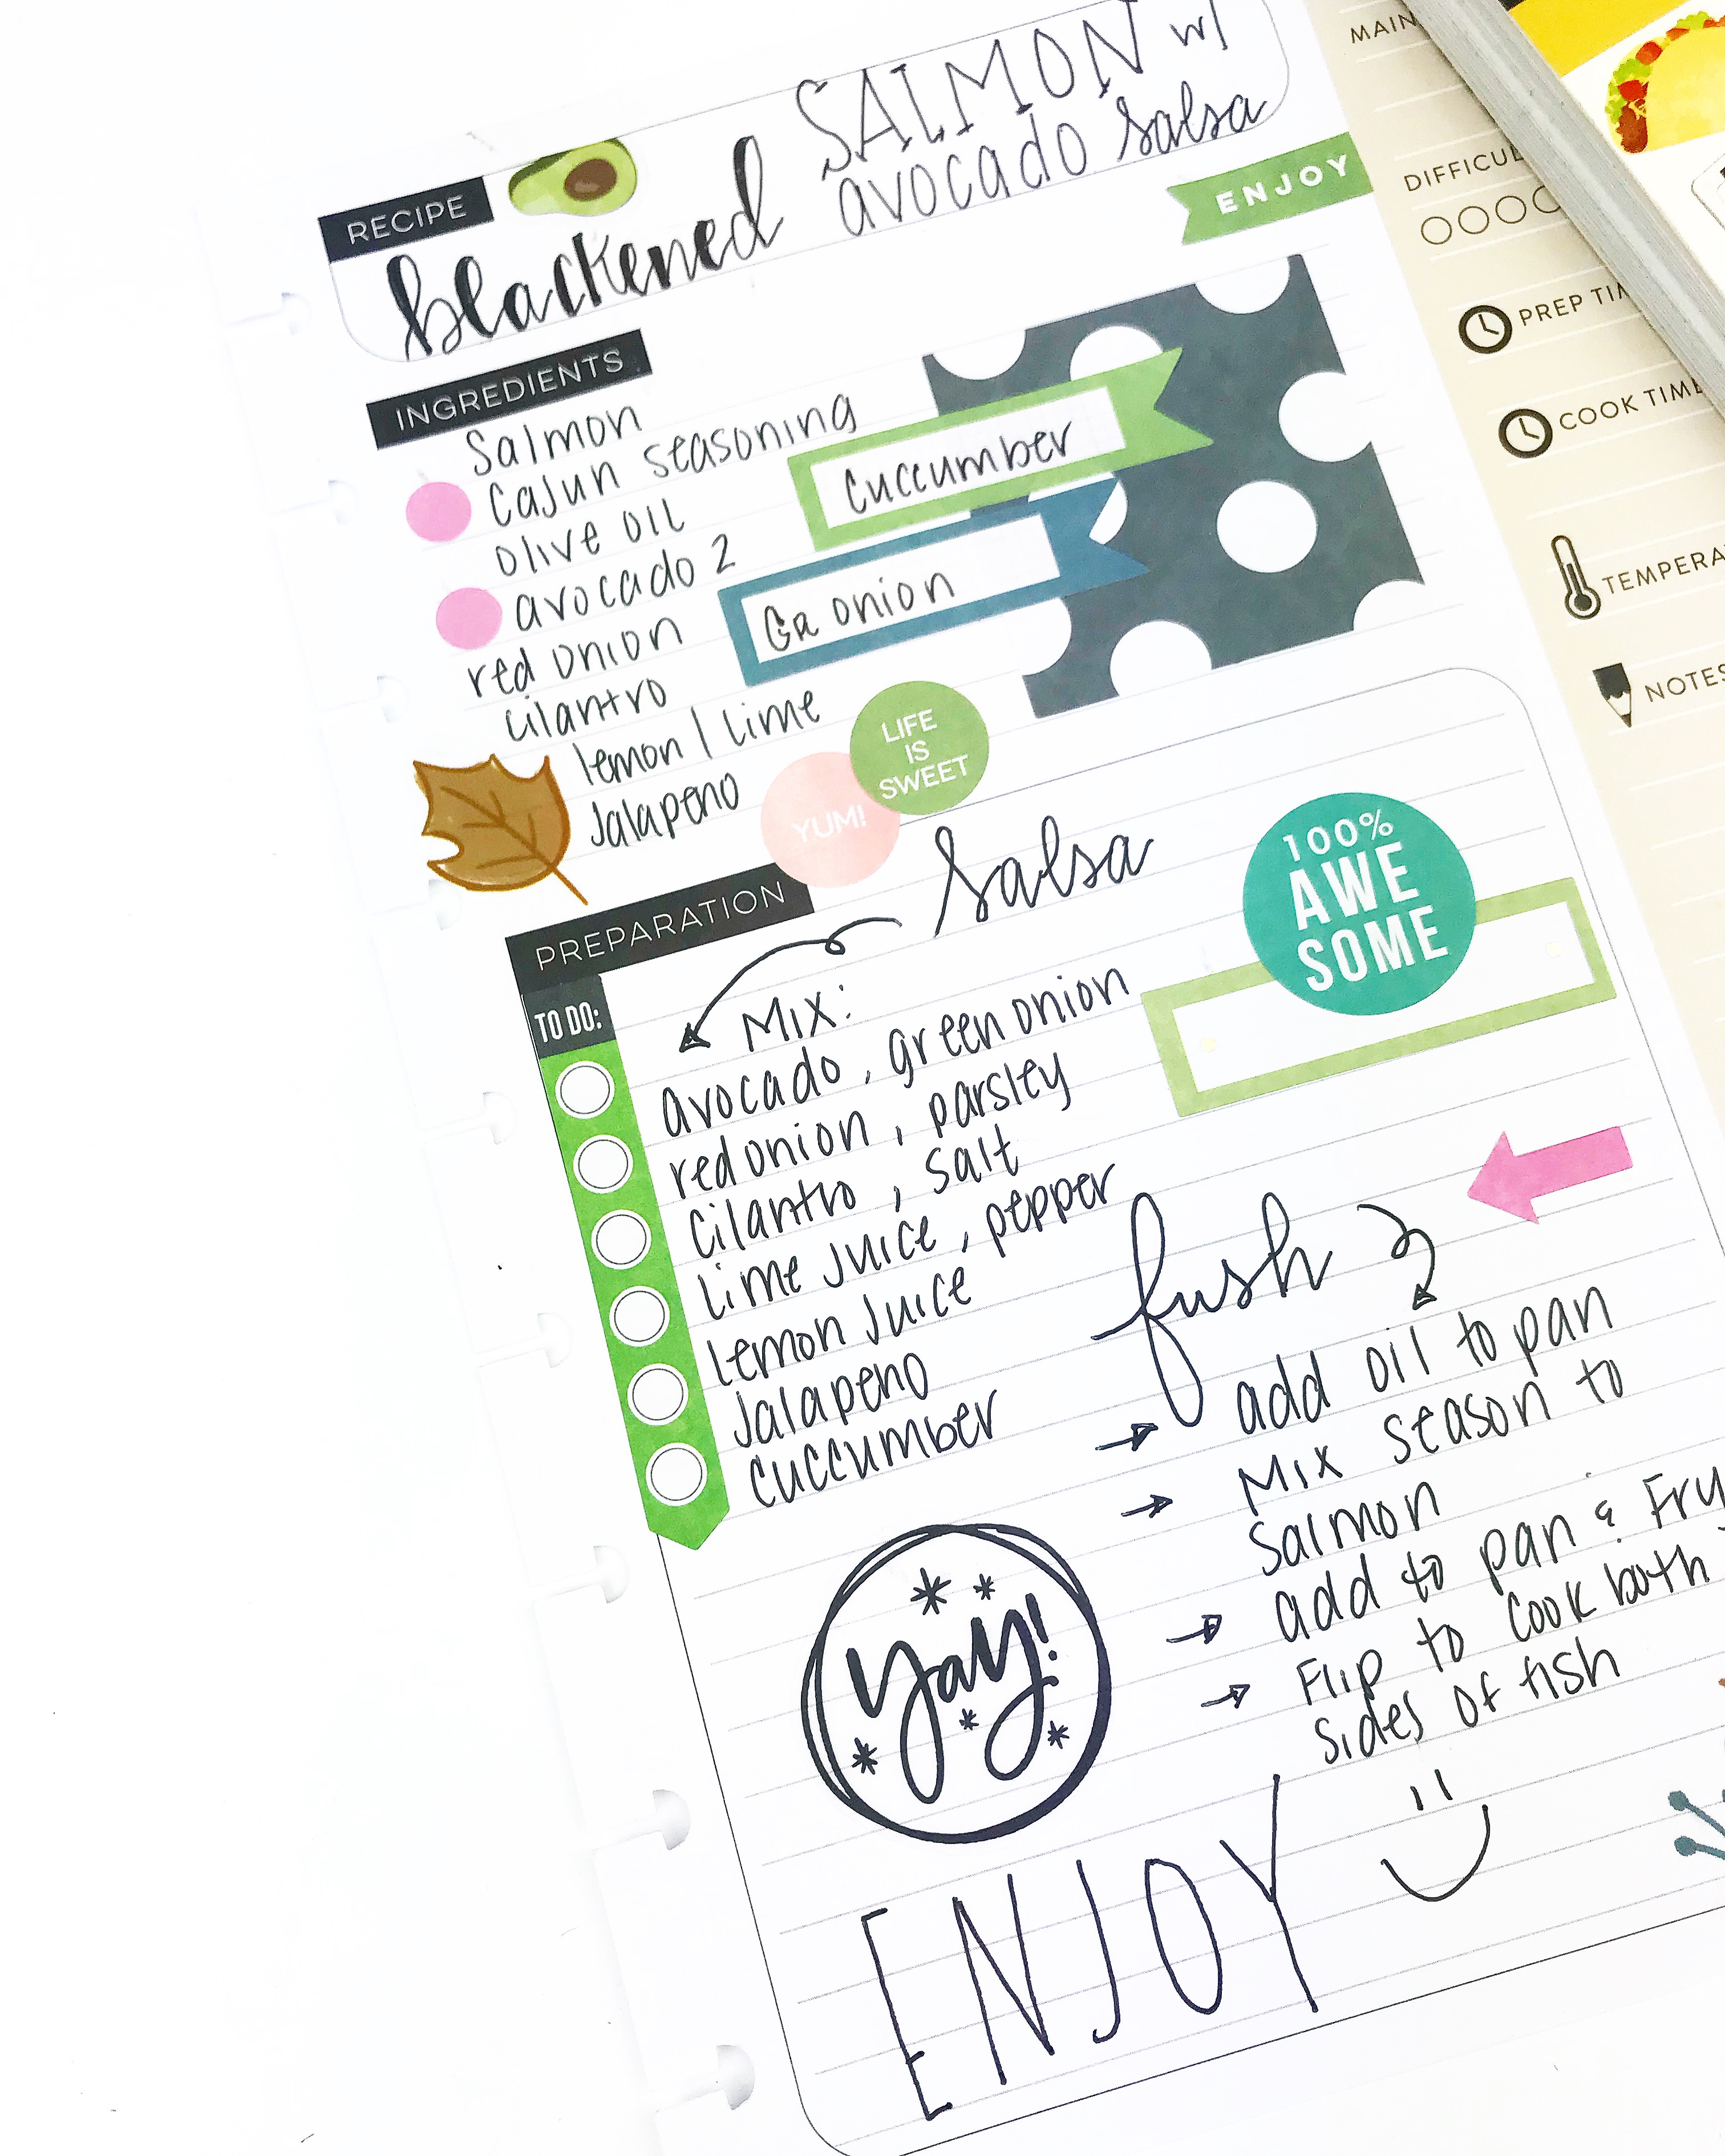 RECIPE
blackened SALMON w/
avocado salsa
ENJOY
INGREDIENTS
Salmon
Cajun seasoning
olive oil
avocado 2
red onion
cilantro
lemon / lime
Jalapeno
Cuccumber
Gr onion
LIFE
IS
SWEET
YUM!
PREPARATION
Salsa
100%
AWE
SOME
TO DO:
Mix:
avocado, green onion
red onion, parsley
cilantro, salt
lime juice, pepper
lemon juice
Jalapeno
cuccumber
fush
add oil to pan
Mix season to
Salmon
add to pan & Fry
Flip to cook both
sides of fish
yay!
ENJOY
MAIN
DIFFICUL
PREP TIM
COOK TIME
TEMPERA
NOTES